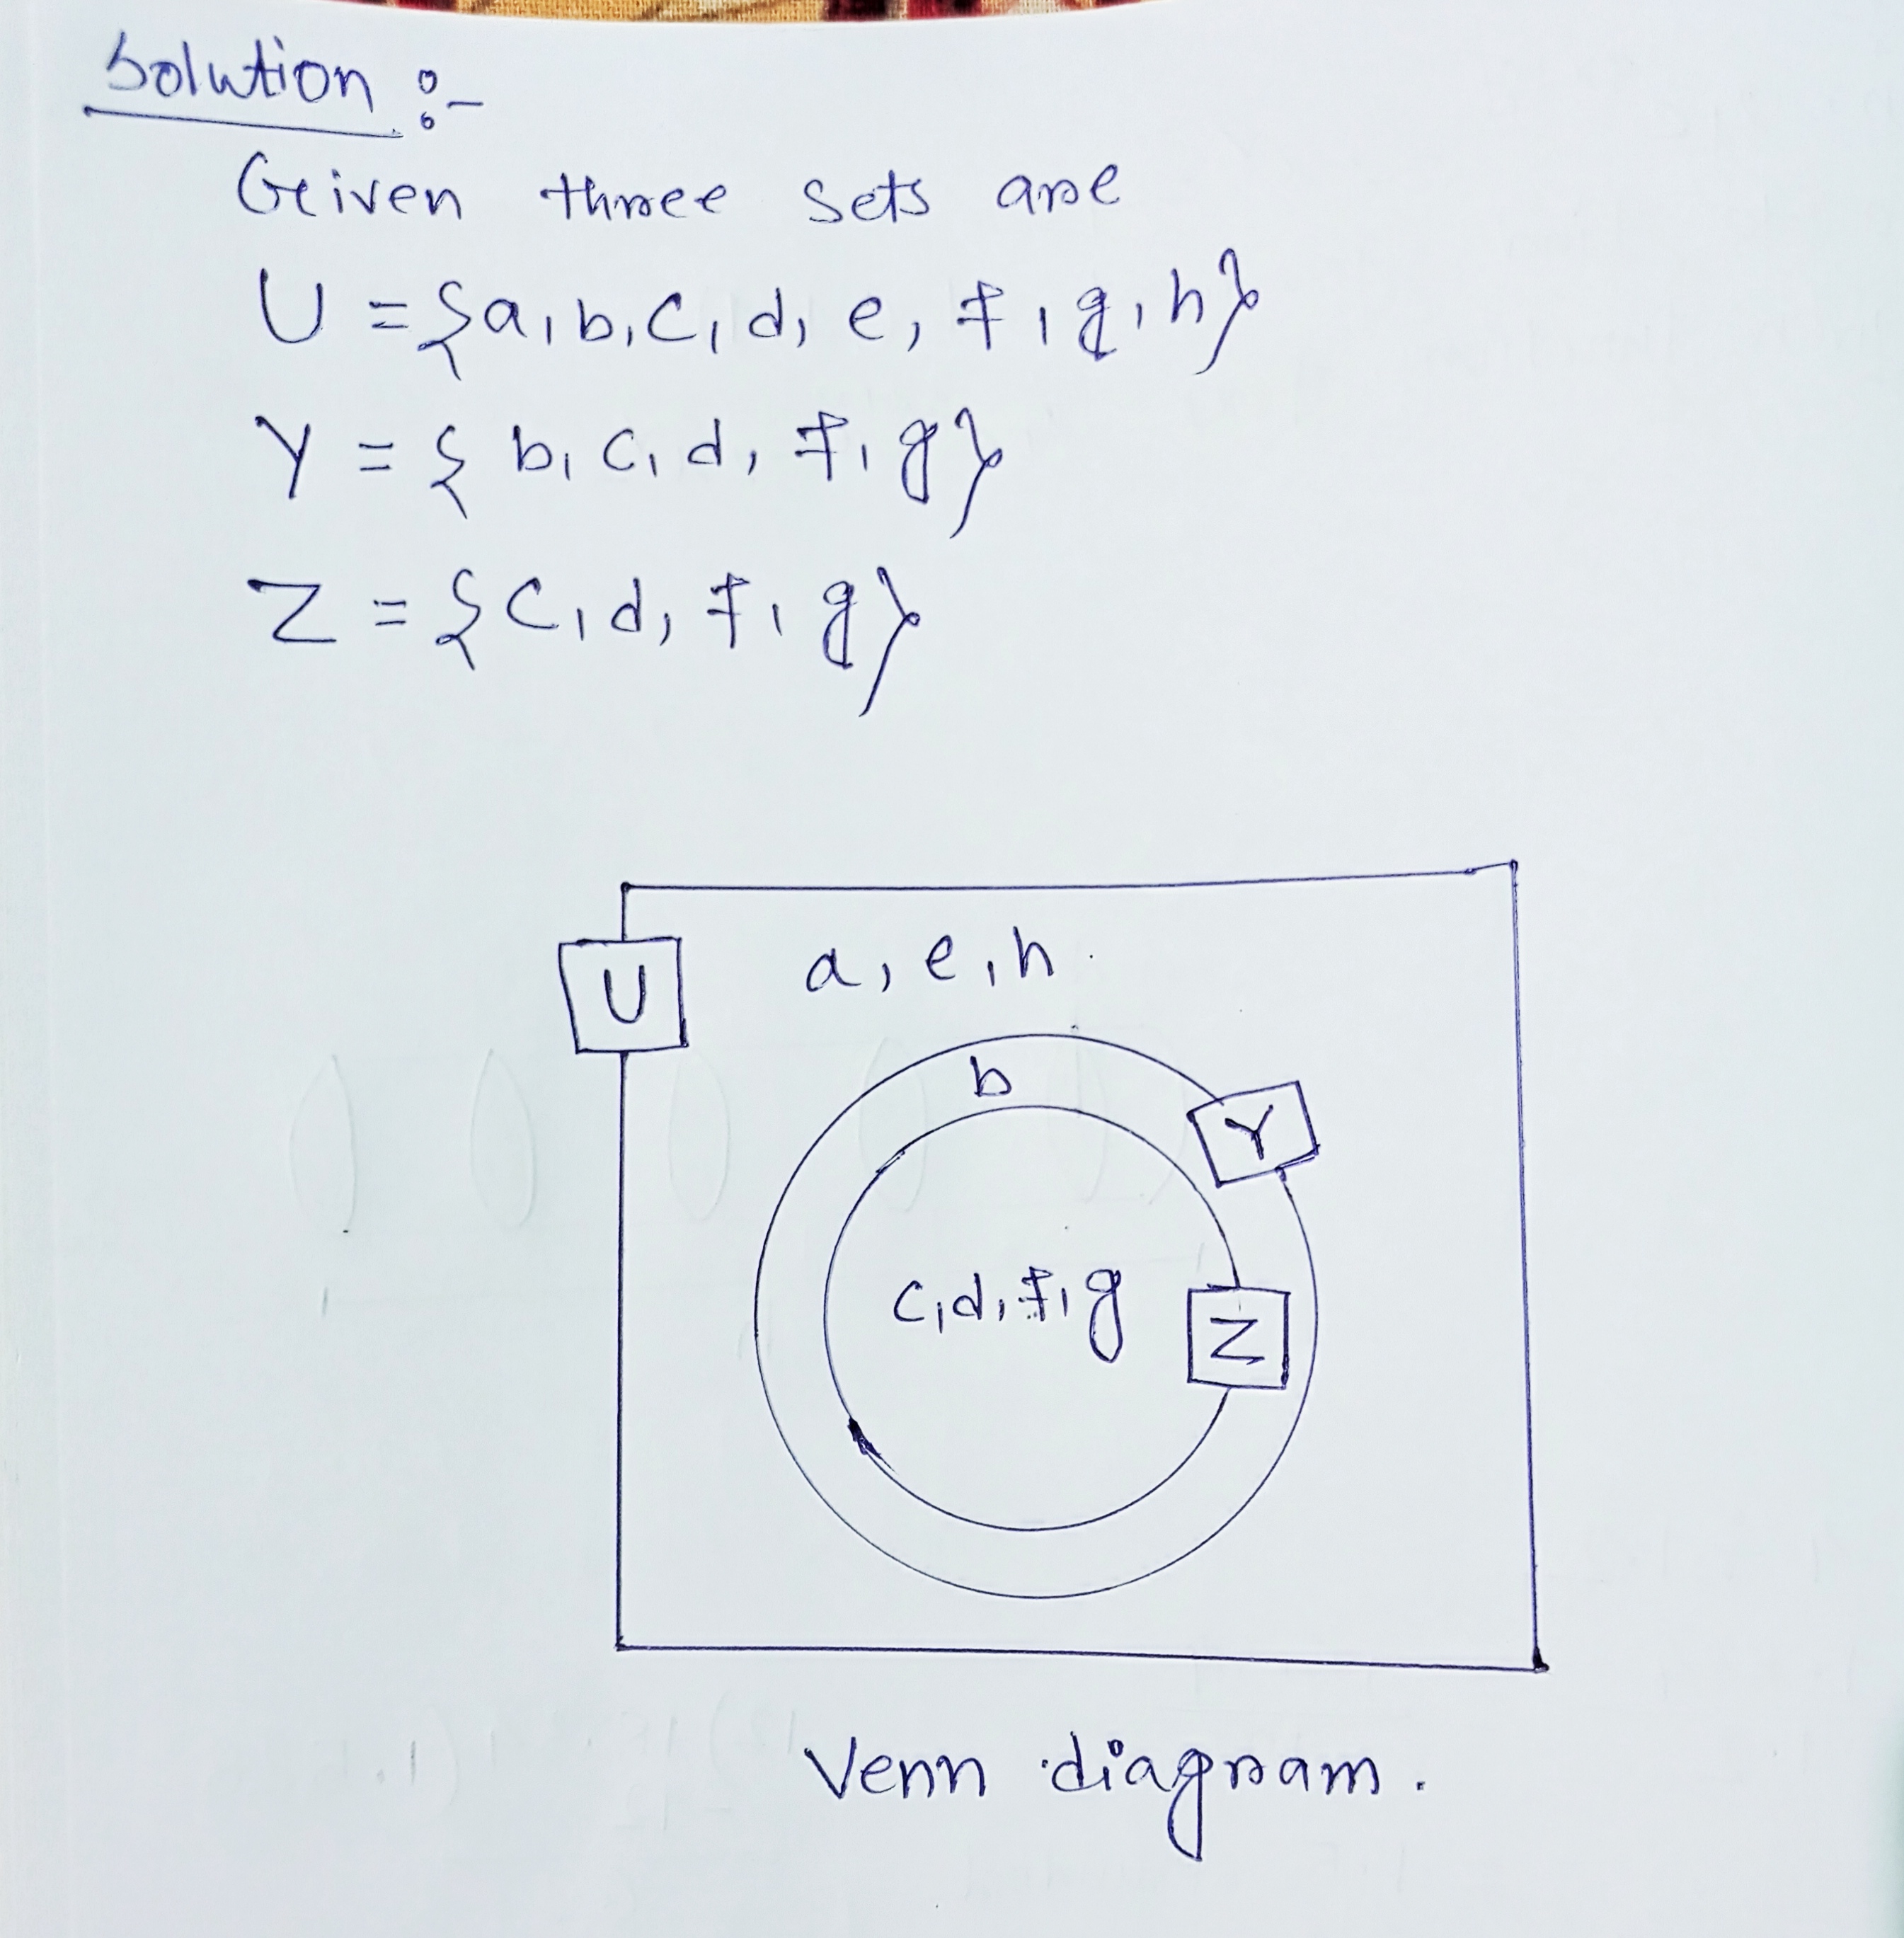 Solution :-
Given three sets are
U = {a, b, c, d, e, f, g, h}
Y = { b, c, d, f, g}
Z = {c, d, f, g}
U
a, e, h.
b
Y
c, d, f, g
Z
Venn diagram.